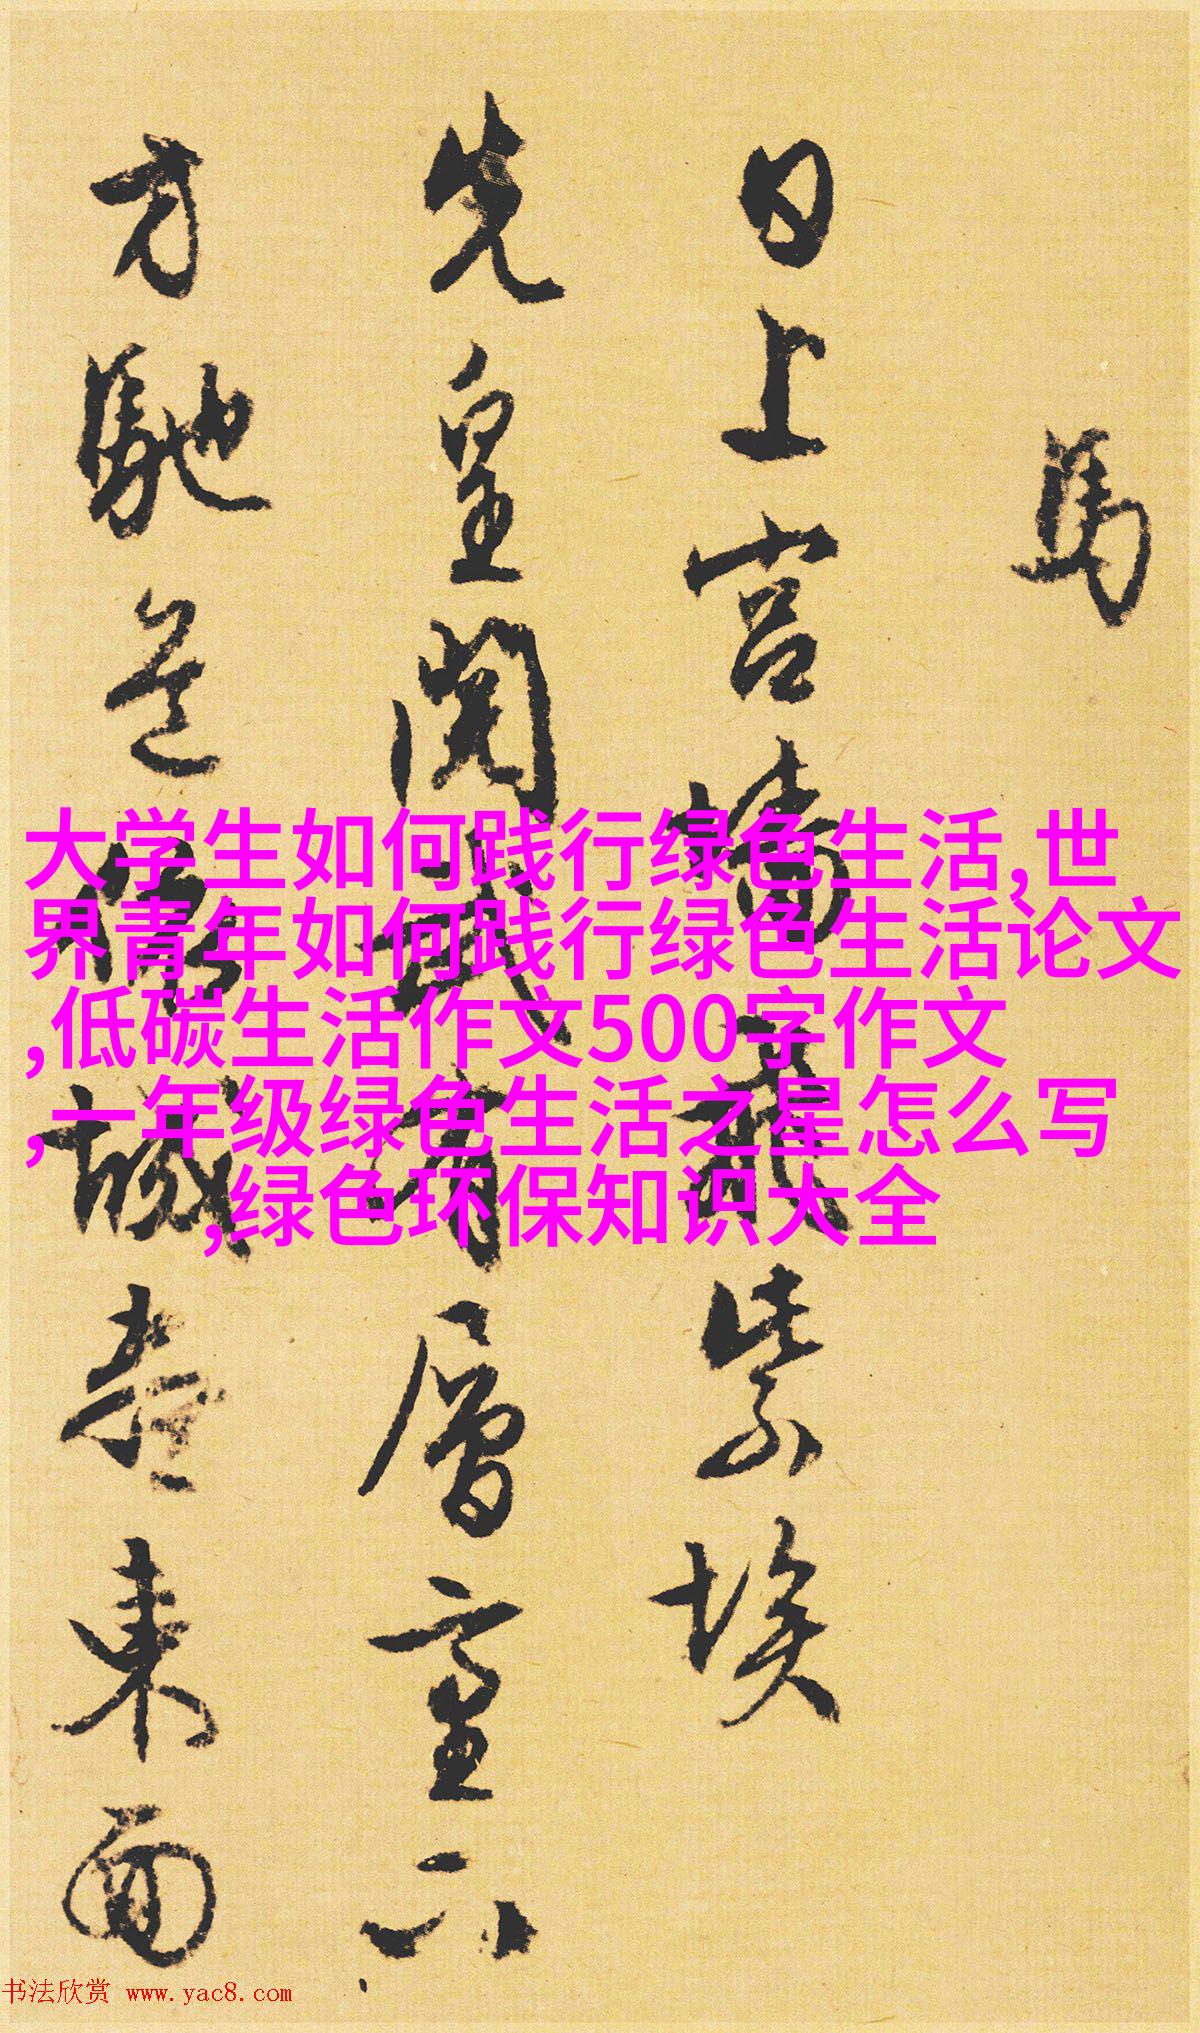 馬
日上宮墻霏紫埃
先皇閱武有層臺下
方馳道依城盡東面
大学生如何践行绿色生活,世
界青年如何践行绿色生活论文
,低碳生活作文500字作文
,一年级绿色生活之星怎么写
,绿色环保知识大全
书法欣赏 www.yac8.com